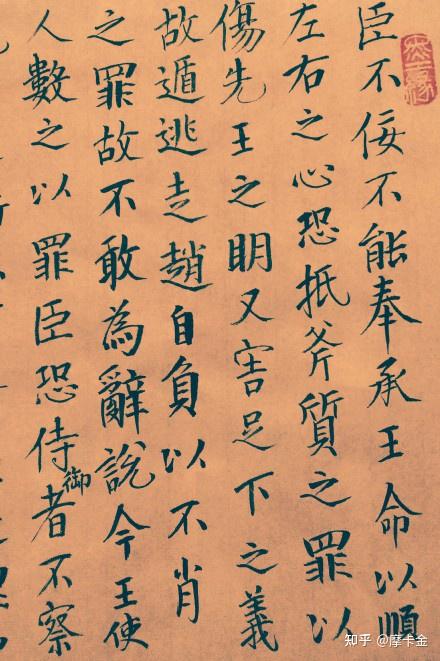 臣不佞不能奉承王命以順
左右之心恐抵斧質之罪以
傷先王之明又害足下之義
故遁逃走趙自負以不肖
之罪故不敢為辭說今王使
人數之以罪臣恐侍御者不察
知乎 @摩卡金